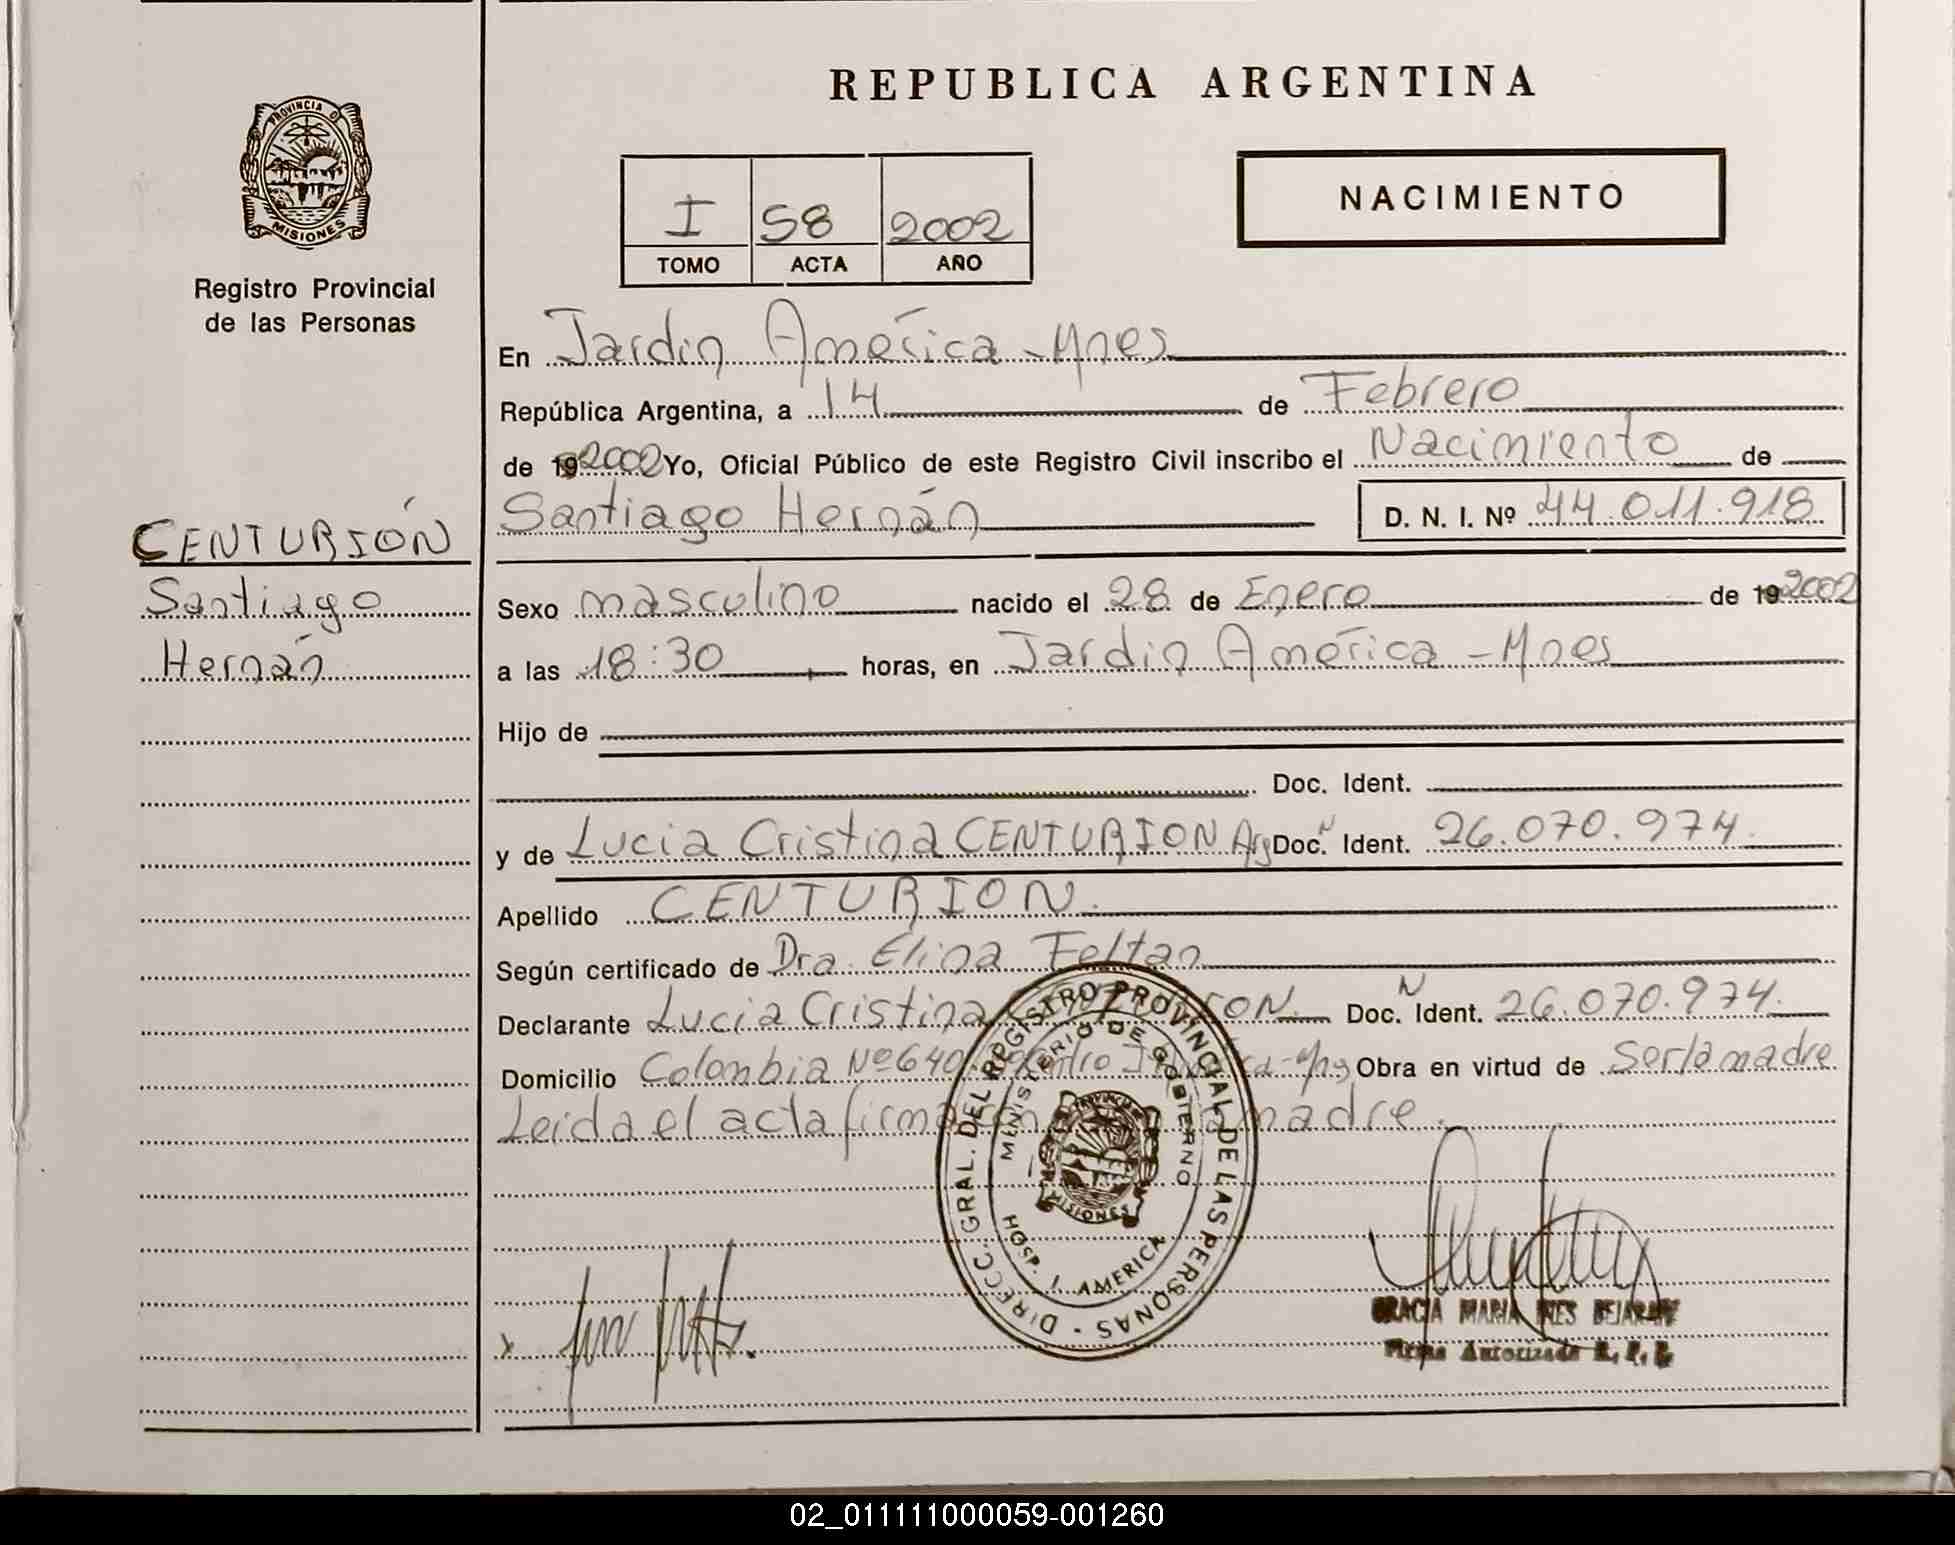 REPUBLICA ARGENTINA
PROVINCIA DE
MISIONES
Registro Provincial
de las Personas
NACIMIENTO
I 58 2002
TOMO ACTA AÑO
En Jardin América - Mnes
República Argentina, a 14 de Febrero
de 19 2002 Yo, Oficial Público de este Registro Civil inscribo el Nacimiento de
Santiago Hernán D. N. I. Nº 44.011.918
CENTURIÓN
Santiago
Hernán
Sexo masculino nacido el 28 de Enero de 19 2002
a las 18:30 horas, en Jardin América - Mnes
Hijo de
Doc. Ident.
y de Lucia Cristina CENTURION Arg Doc. N Ident. 26.070.974
Apellido CENTURION.
Según certificado de Dra. Elina Feltan
Declarante Lucia Cristina Doc. N Ident. 26.070.974.
Domicilio Colombia Nº 640 Obra en virtud de Ser la madre
Leida el acta madre.
DIRECC. GRAL. DEL REGISTRO PROVINCIAL DE LAS PERSONAS -
MINISTERIO DE GOBIERNO
HOSP. J. AMERICA
MISIONES
GRACIA MARIA INES BEJARANO
Firma Autorizada R. P. P.
02_011111000059-001260